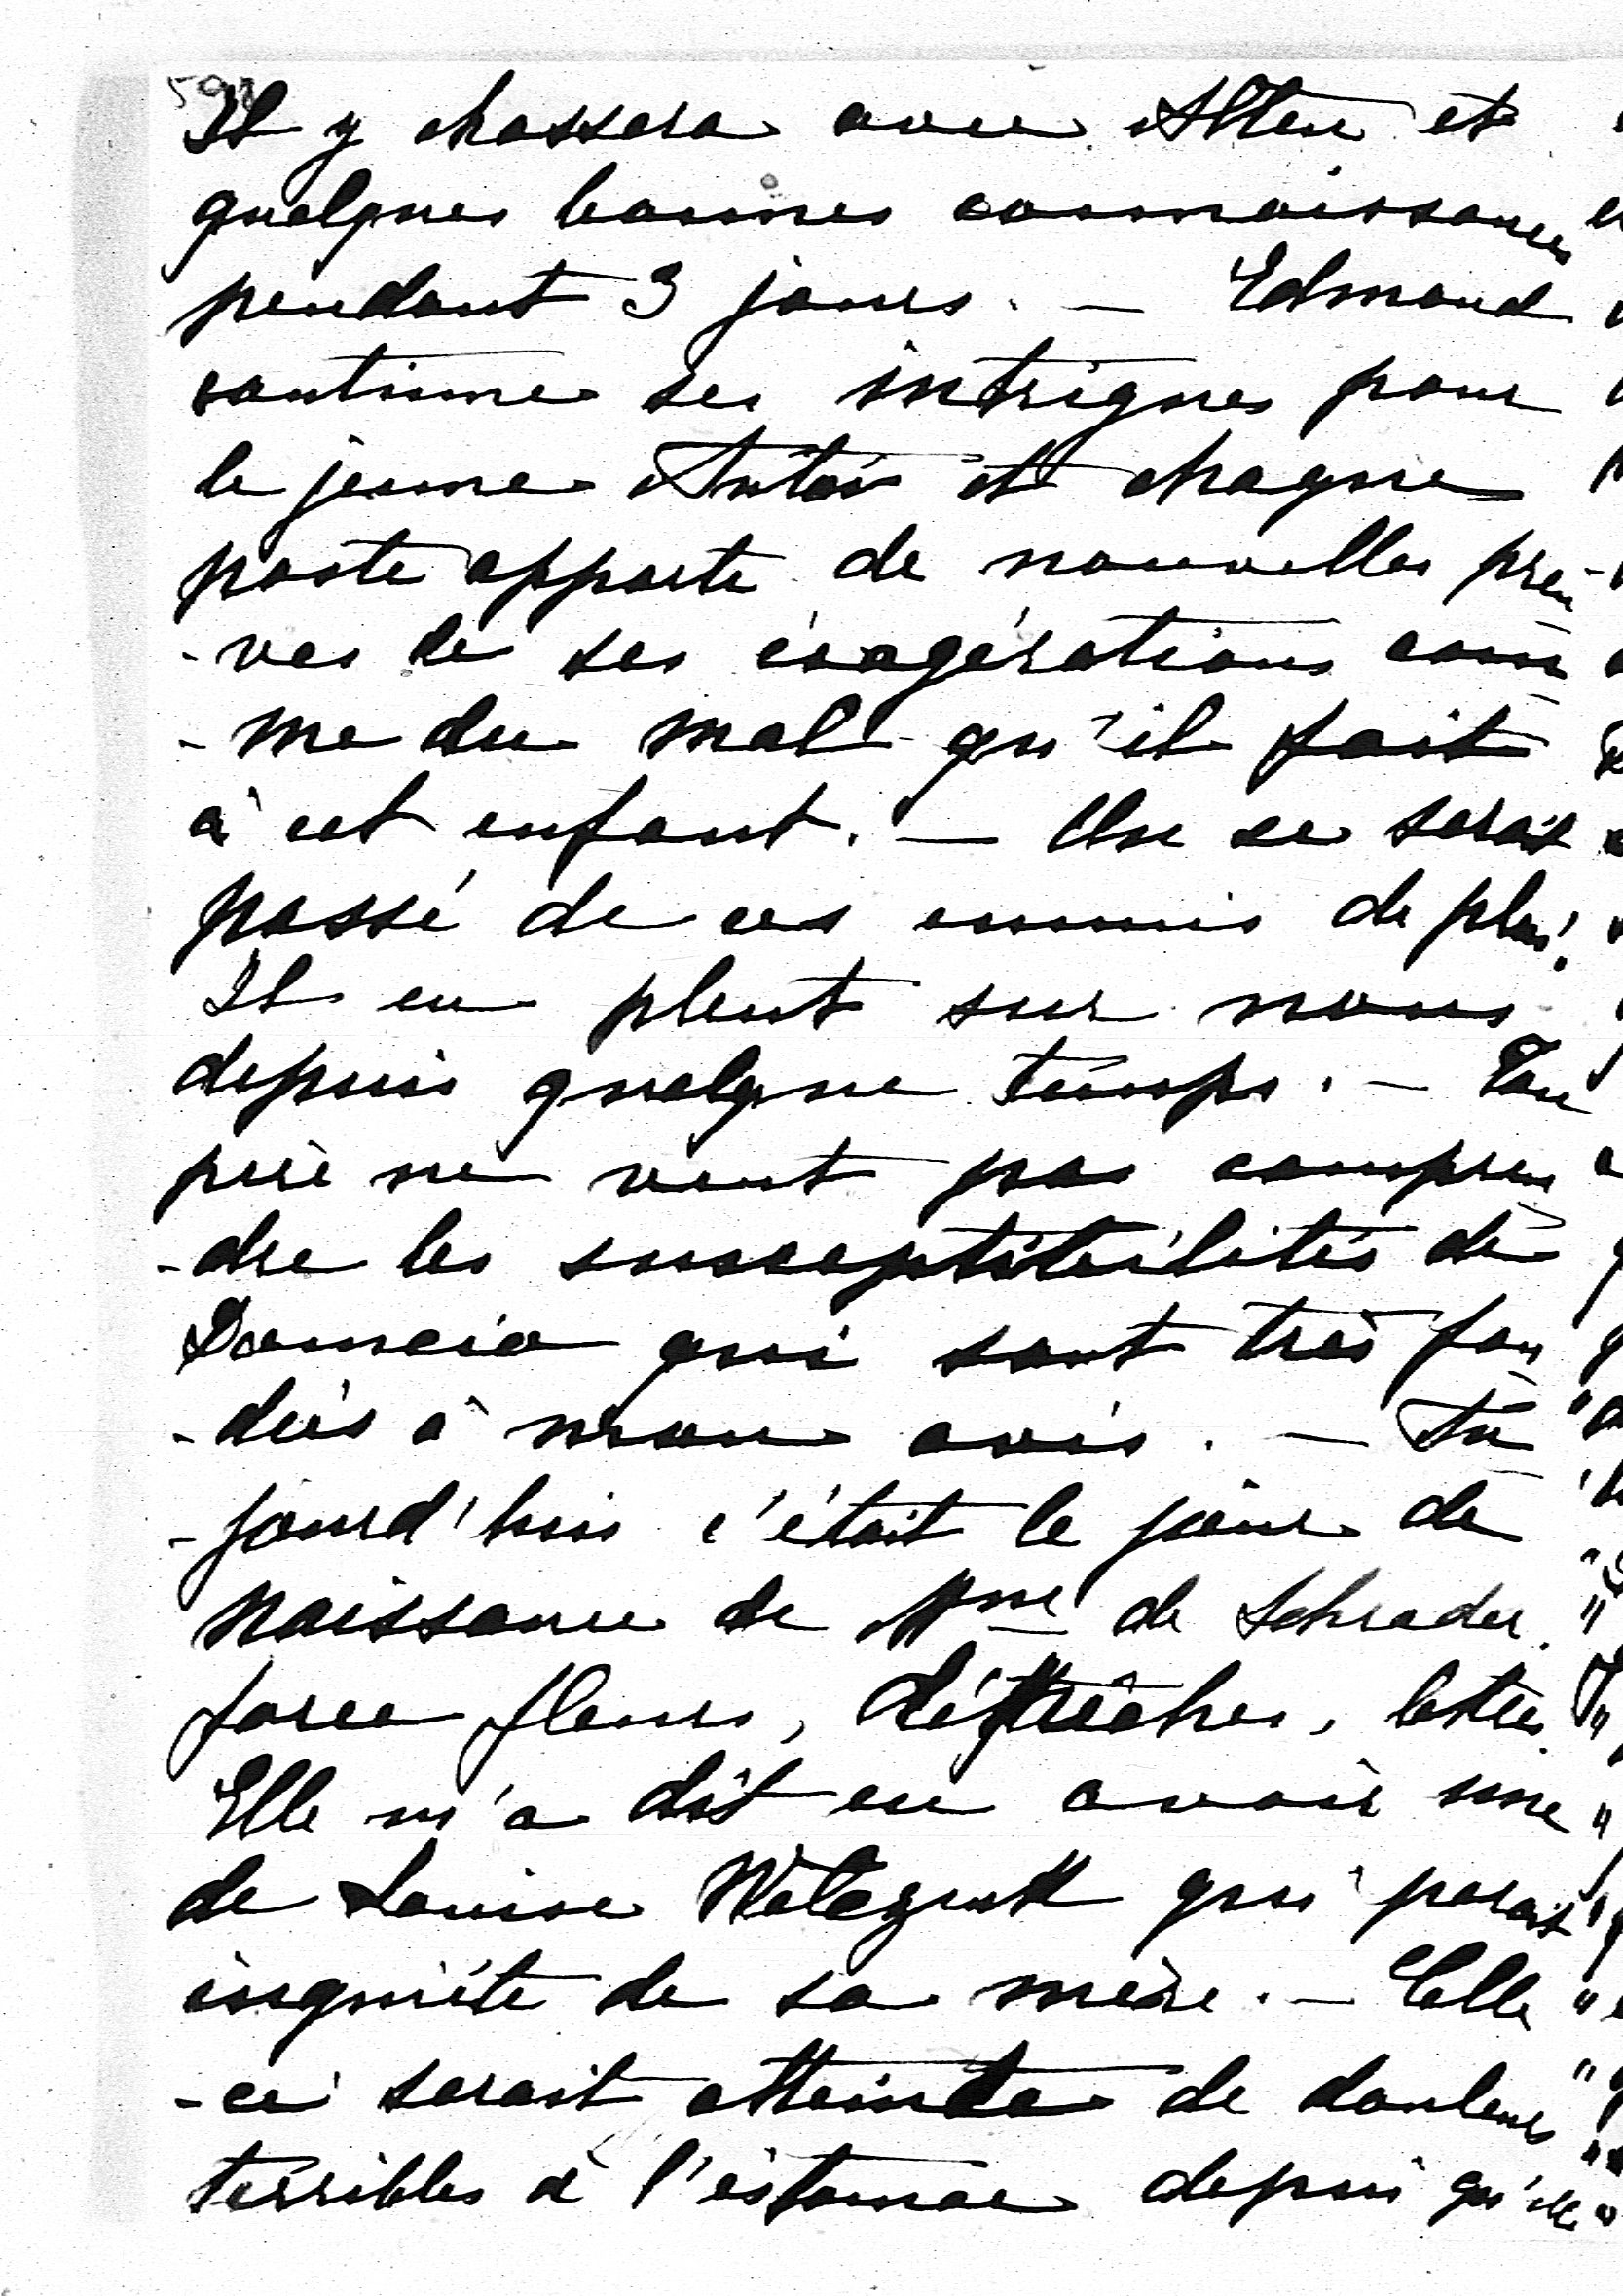 Il y chassera avec Alten et
quelques bonnes connaissances
pendant 3 jours. — Edmond
continue ses intrigues pour
le jeune et chaque
poste apporte de nouvelles preu-
-ves de ses éxagérations com
-me du mal qu'il fait
à cet enfant. — On se serait
passé de ces ennuis de plus!
Il en pleut sur nous
depuis quelque temps. — Ton
père ne veut pas compren
-dre les susceptibilités de
qui sont très fon
-deés à mon avis. — Au
-jourd'hui c'était le jour de
naissance de Mme de Schrader.
force fleurs, dépêches, lettres.
Elle m'a dit en avoir une
de Louise qui parait
inquiéte de sa mère. — Celle
-ci serait atteinte de douleurs
terribles à l'estomac depuis qu'elle